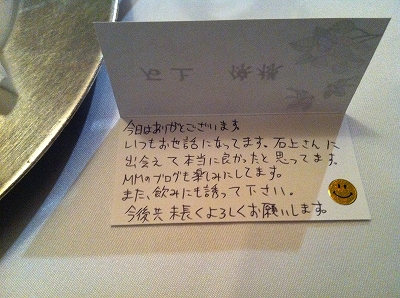 石上 様
今日はありがとございます
いつもお世話になってます。石上さんに
出会えて本当に良かったと思ってます。
MMのブログも楽しみにしてます。
また、飲みにも誘って下さい。
今後共 末長くよろしくお願いします。